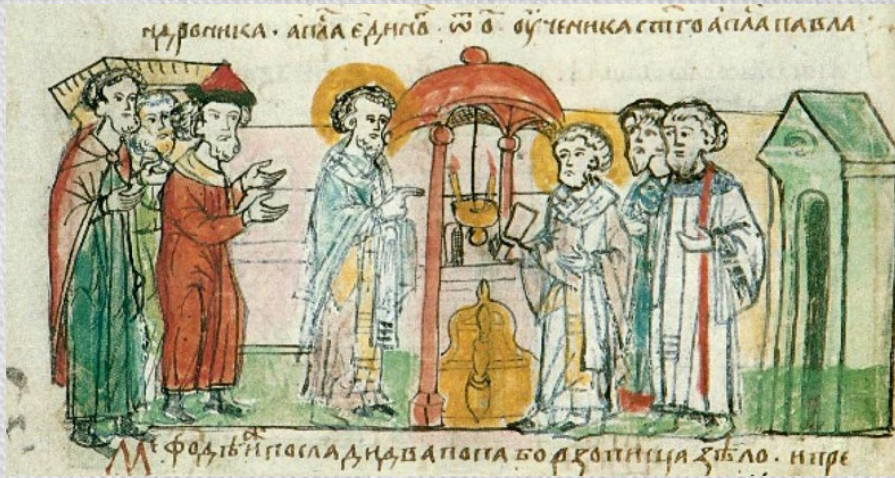 ндроника · апⷭ҇ла единоⷢ҇ · ѿ о҃ · оученика ст҃го апⷭ҇ла павла
Меѳодьи же посади два попа борзописца ѕѣло · и пре